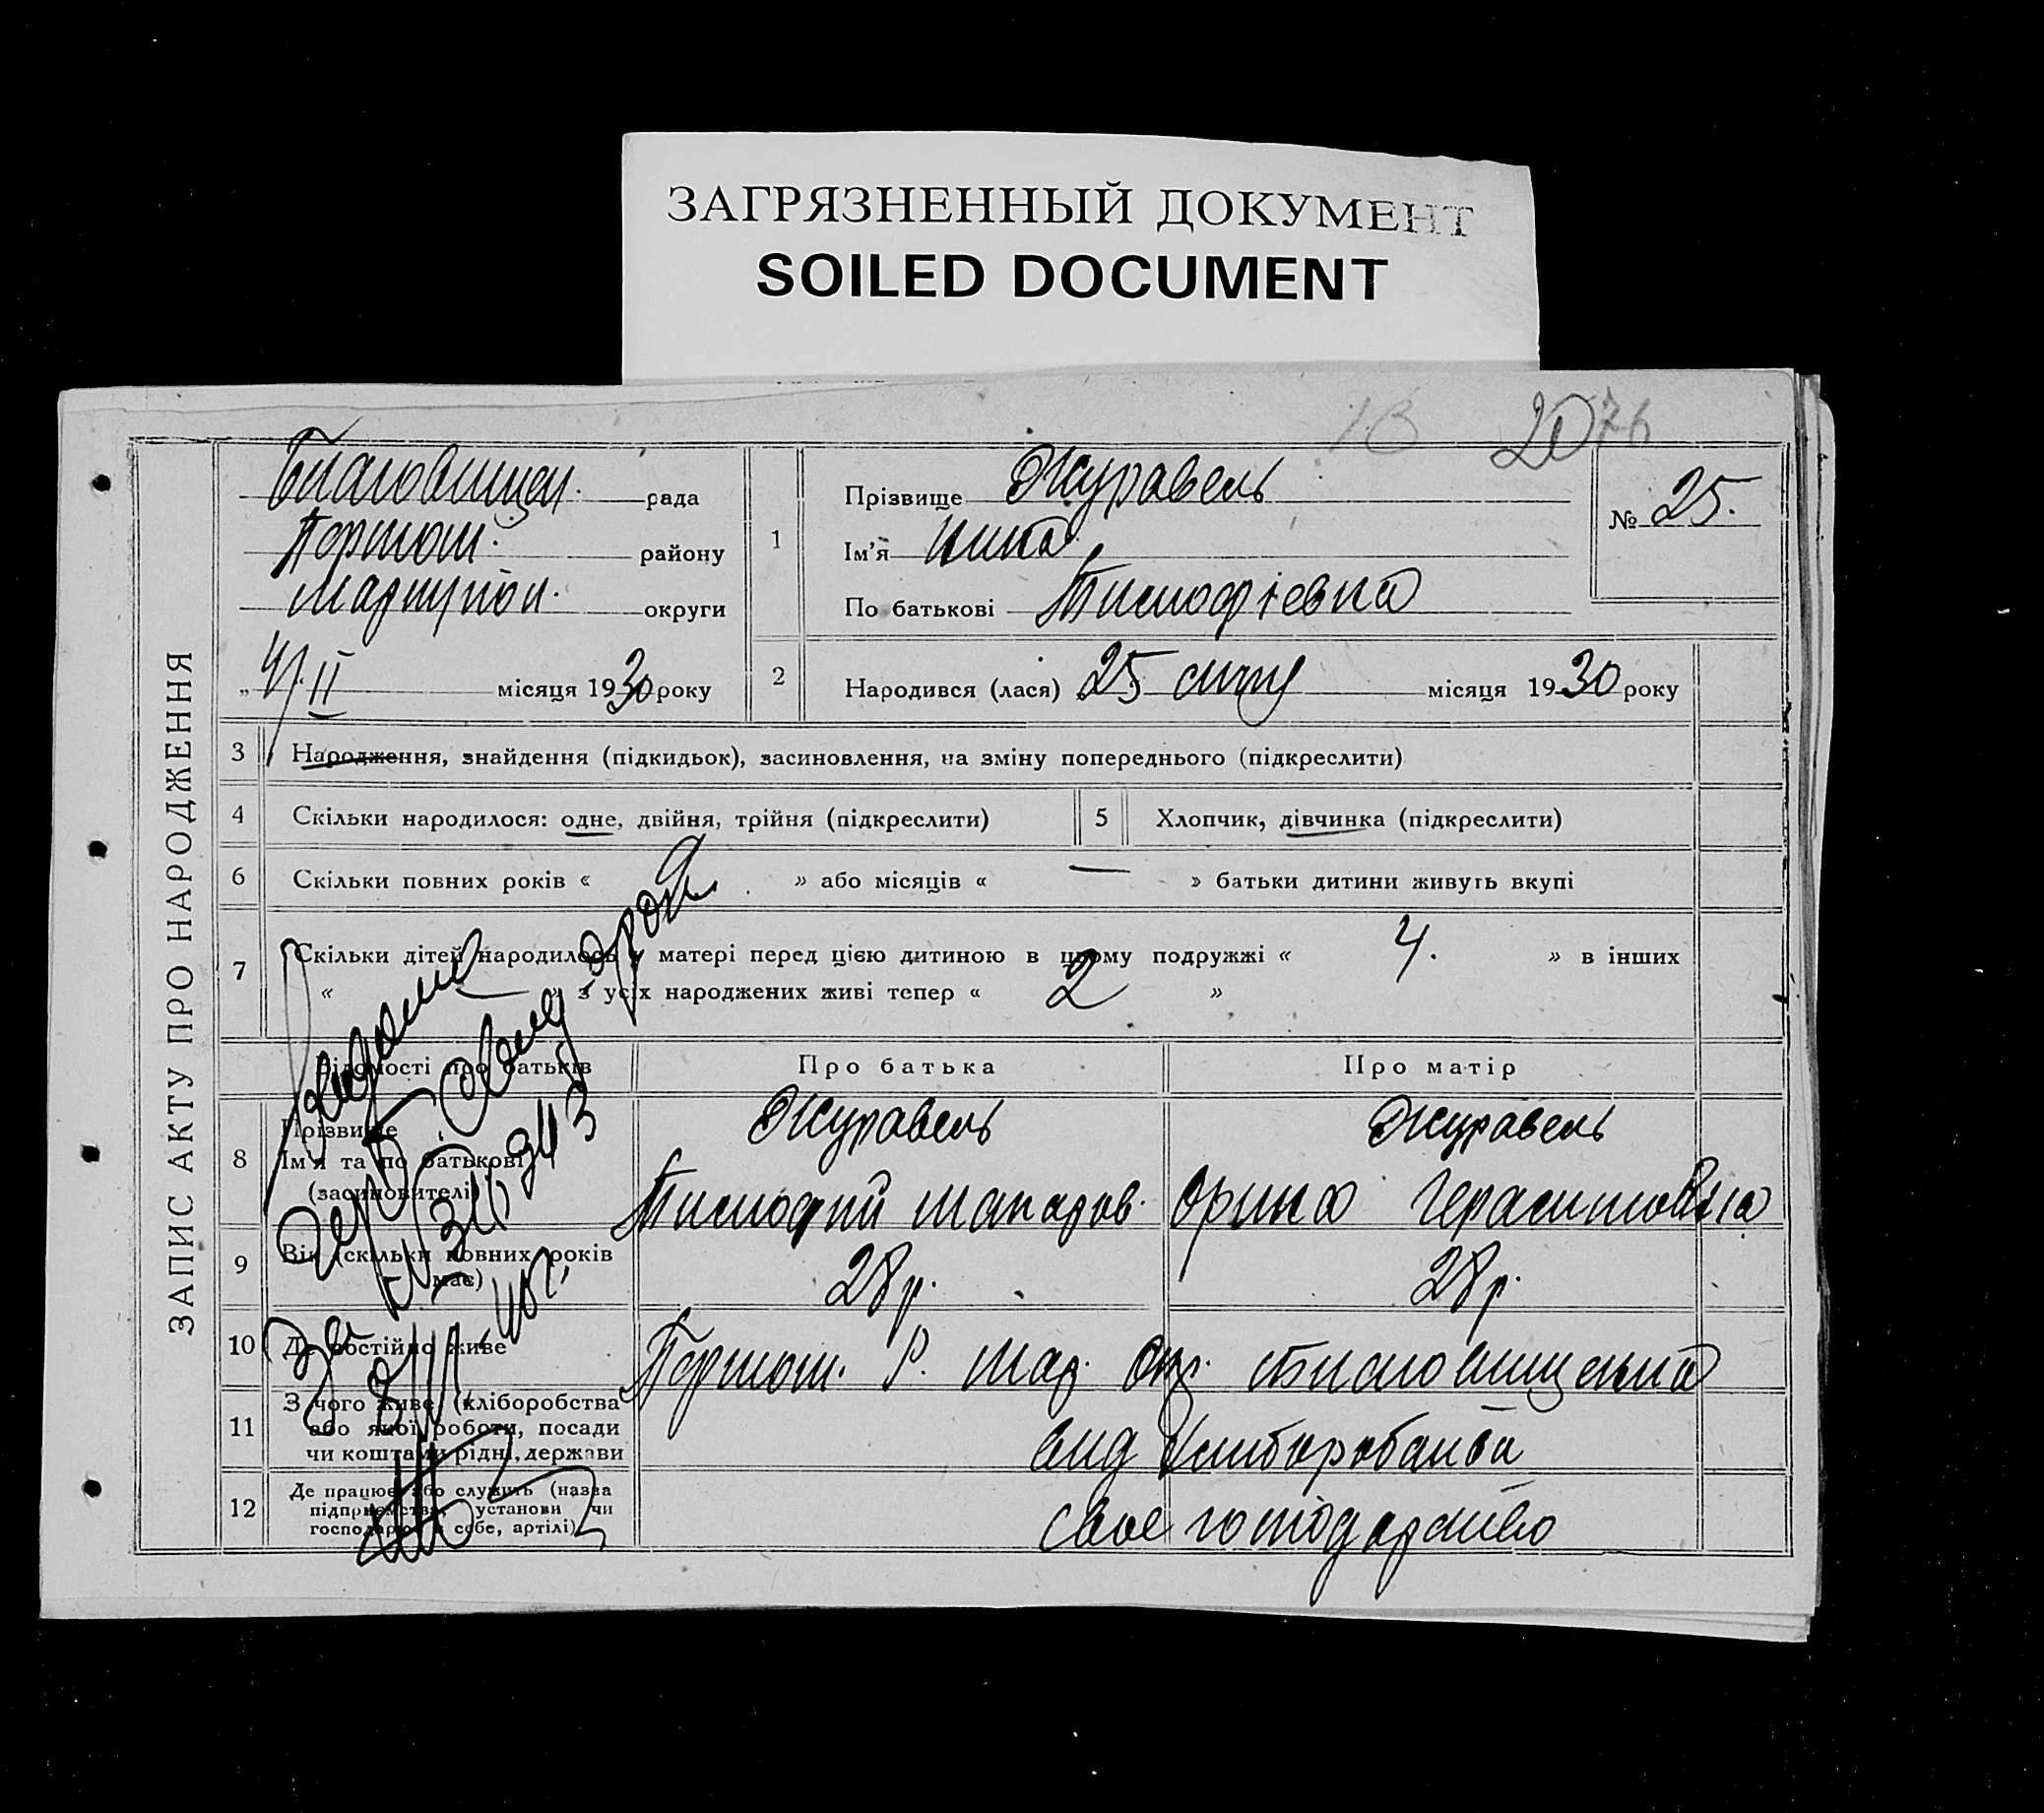 ЗАГРЯЗНЕННЫЙ ДОКУМЕНТ
SOILED DOCUMENT
2076
ЗАПИС АКТУ ПРО НАРОДЖЕННЯ
Благовищен. рада
району
Мариупол. округи
II місяця 1930 року
1
Прізвище Журавель
Ім'я Нина
По батькові Тимофіевна
№ 25.
2 Народився (лася) 25 місяця 1930 року
3 Народження, знайдення (підкидьок), засиновлення, на зміну попереднього (підкреслити)
4 Скільки народилося: одне, двійня, трійня (підкреслити)
5 Хлопчик, дівчинка (підкреслити)
6 Скільки повних років « » або місяців « — » батьки дитини живуть вкупі
7 Скільки дітей народилось у матері перед цією дитиною в цьому подружжі « 4. » в інших
« — » з усіх народжених живі тепер « 2 »
Відомості про батьків
Про батька
Про матір
8 Прізвище
Ім'я та по батькові
(засиновителі)
Журавель
Тимофий Макаров.
Журавель
Орина Герасимовна
9 Вік (скільки повних років
має)
28 р.
28 р.
10 Де постійно живе
Р. Мар. Окр. Благовищенка
11 З чого живе (хліборобства
або якої роботи, посади
чи коштами рідні, держави
вид Хлиборобства
12 Де працює або служить (назва
підприємства, установи чи
господарює в себе, артілі)
свое господарство
Выдано